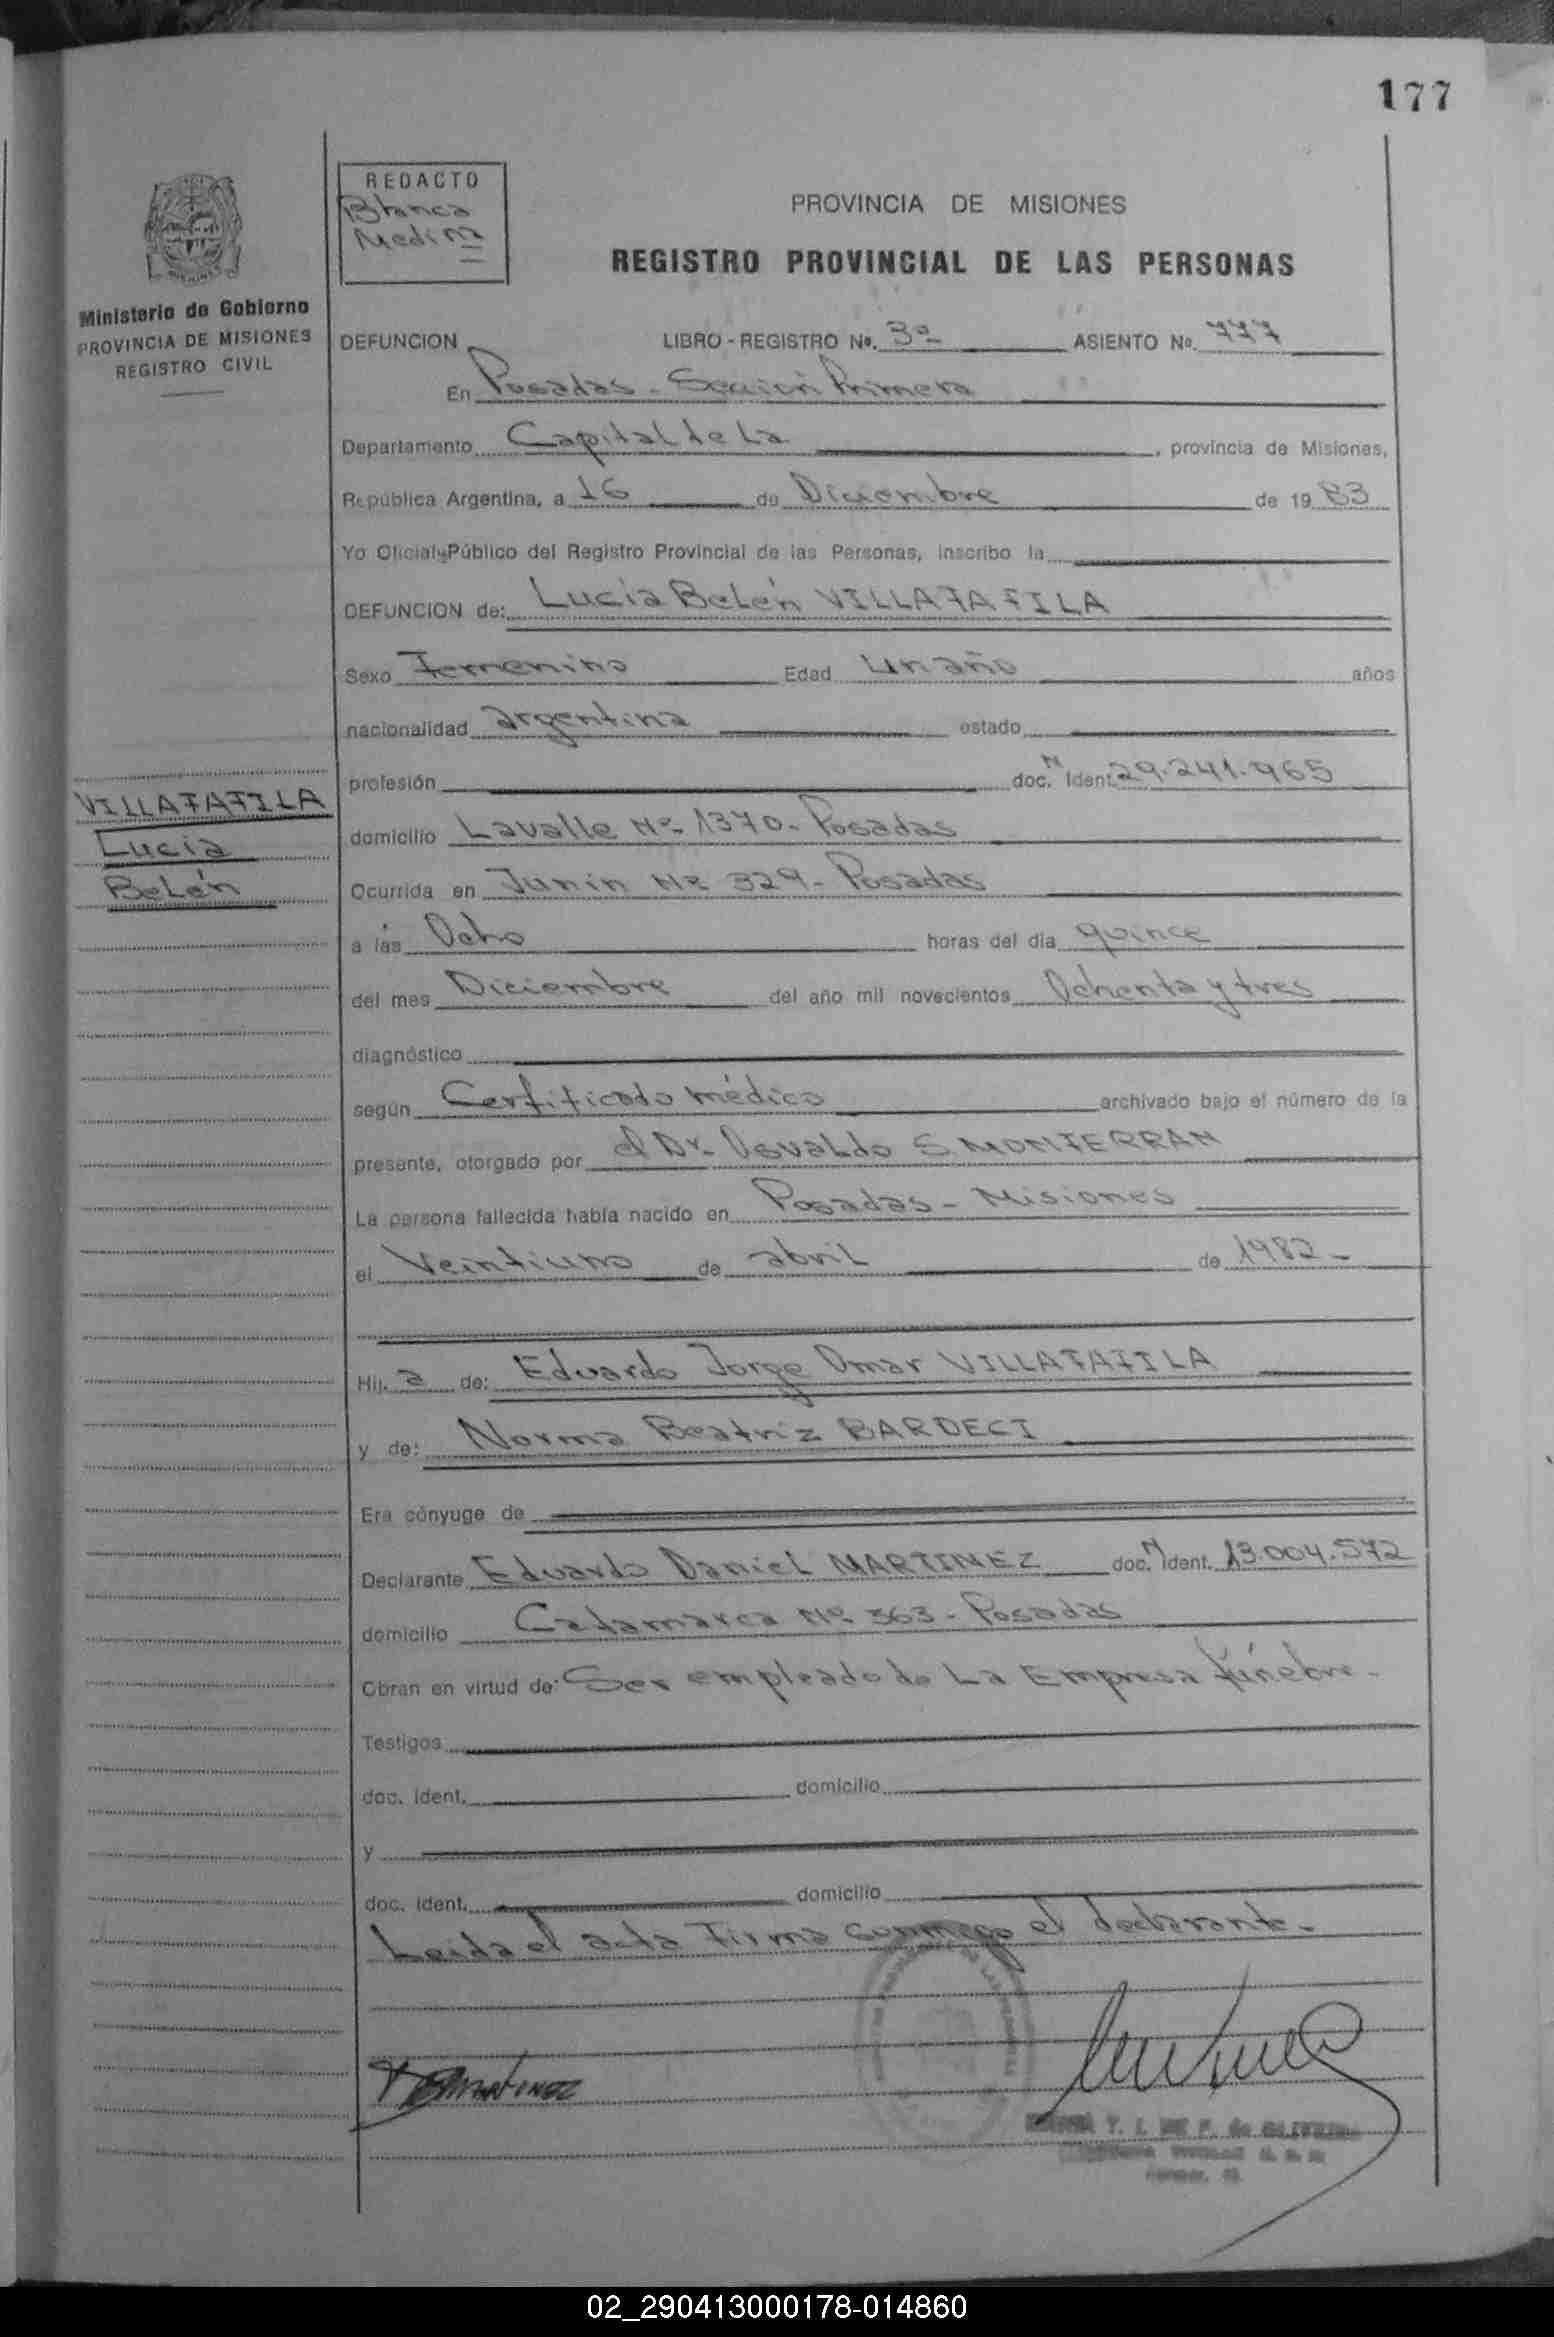 177
REDACTO
Blanca
Medina
PROVINCIA DE MISIONES
REGISTRO PROVINCIAL DE LAS PERSONAS
Ministerio de Gobierno
PROVINCIA DE MISIONES
REGISTRO CIVIL
DEFUNCION LIBRO - REGISTRO No. 3º ASIENTO No. 777
En Posadas - Sección Primera
Departamento Capital de La, provincia de Misiones,
República Argentina, a 16 de Diciembre de 1983
Yo Oficial Público del Registro Provincial de las Personas, inscribo la
DEFUNCION de: Lucia Belén VILLAFAFILA
Sexo Femenino Edad Un año años
nacionalidad argentina estado
profesión doc. N Ident. 29.241.965
VILLAFAFILA
Lucia
Belén
domicilio Lavalle Nº 1370 - Posadas
Ocurrida en Junin Nº 329 - Posadas
a las Ocho horas del día quince
del mes Diciembre del año mil novecientos Ochenta y tres
diagnóstico
según Certificado médico archivado bajo el número de la
presente, otorgado por el Dr. Osvaldo S. MONFERRAN
La persona fallecida había nacido en Posadas - Misiones
el Veintiuno de abril de 1982 -
Hij a de: Eduardo Jorge Omar VILLAFAFILA
y de: Norma Beatriz BARDECI
Era cónyuge de
Declarante Eduardo Daniel MARTINEZ doc. N Ident. 13.004.572
domicilio Catamarca Nº 363 - Posadas
Obran en virtud de: Ser empleado de La Empresa fúnebre -
Testigos
doc. ident. domicilio
y
doc. ident. domicilio
Leida el acta Firma conmigo el declarante -
02_290413000178-014860